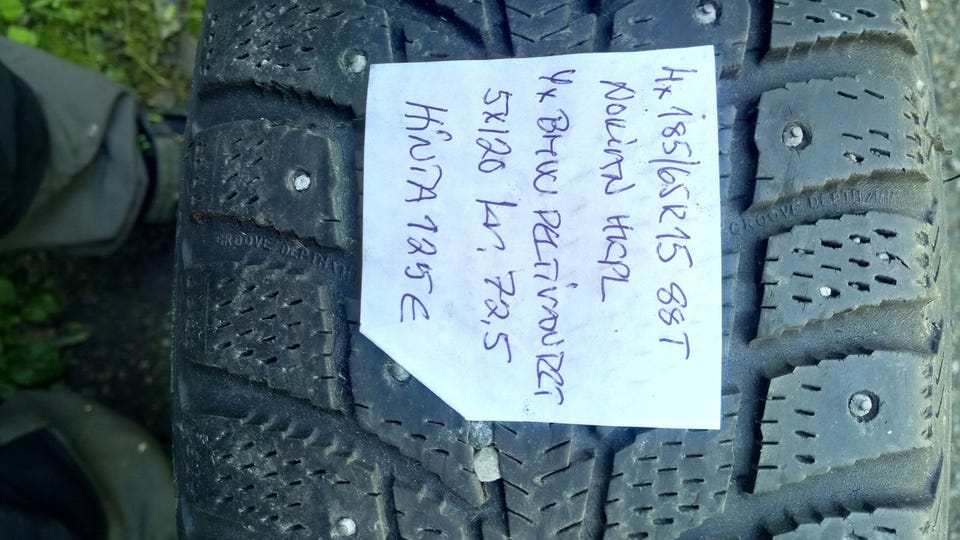 4x 185/65R15 88T
NOKIAN HKPL
4x BMW PELTIVANTEET
5x120 kr; 72,5
HINTA 125€
GROOVE DEPTH/MM
GROOVE DEPTH/MM